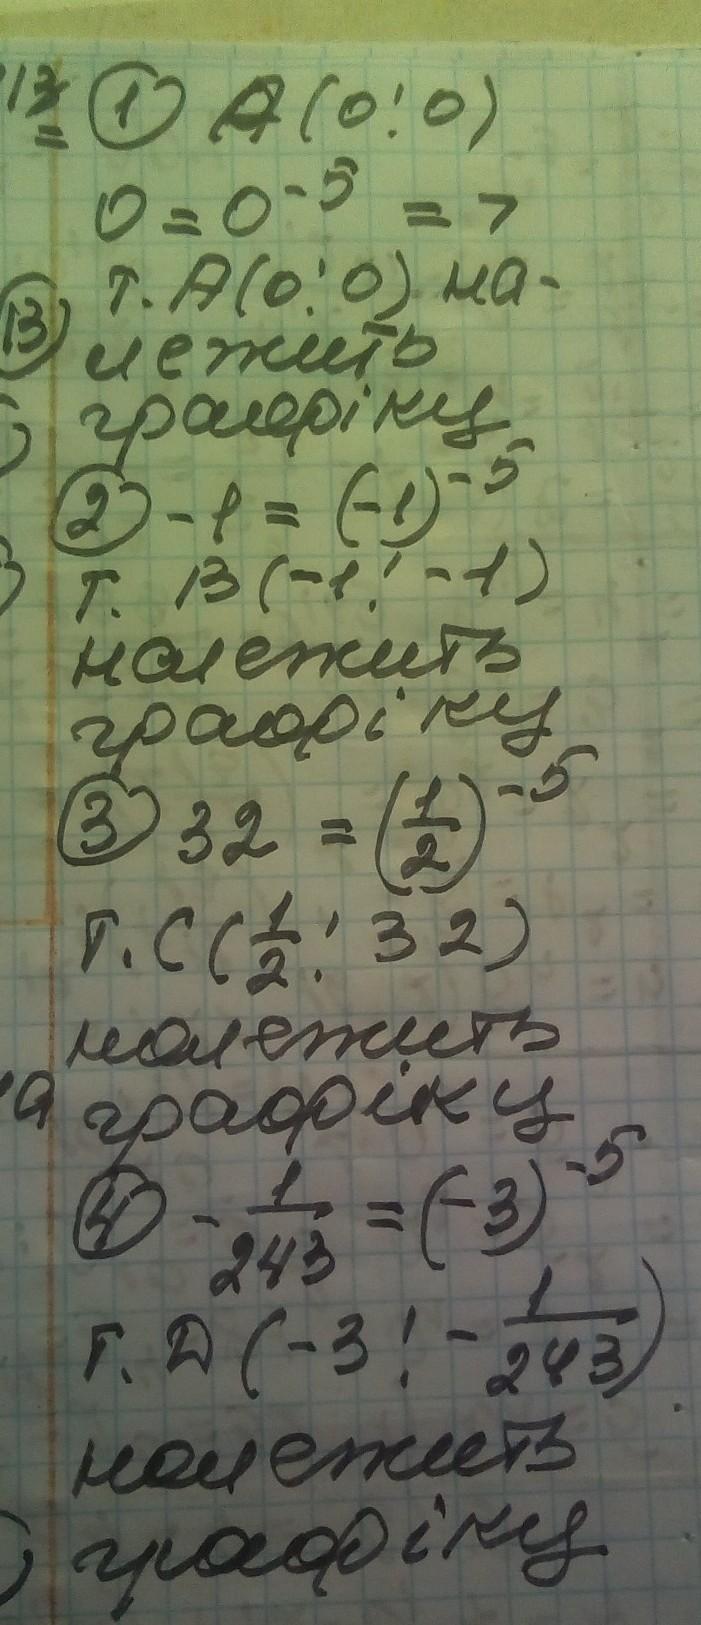 13 ① A(0; 0)
0 = 0^-5 =>
т. A(0; 0) на-
лежить
графіку
② -1 = (-1)^-5
т. B(-1; -1)
належить
графіку
③ 32 = (1/2)^-5
т. C(1/2; 32)
належить
графіку
④ -1/243 = (-3)^-5
т. D(-3; -1/243)
належить
графіку